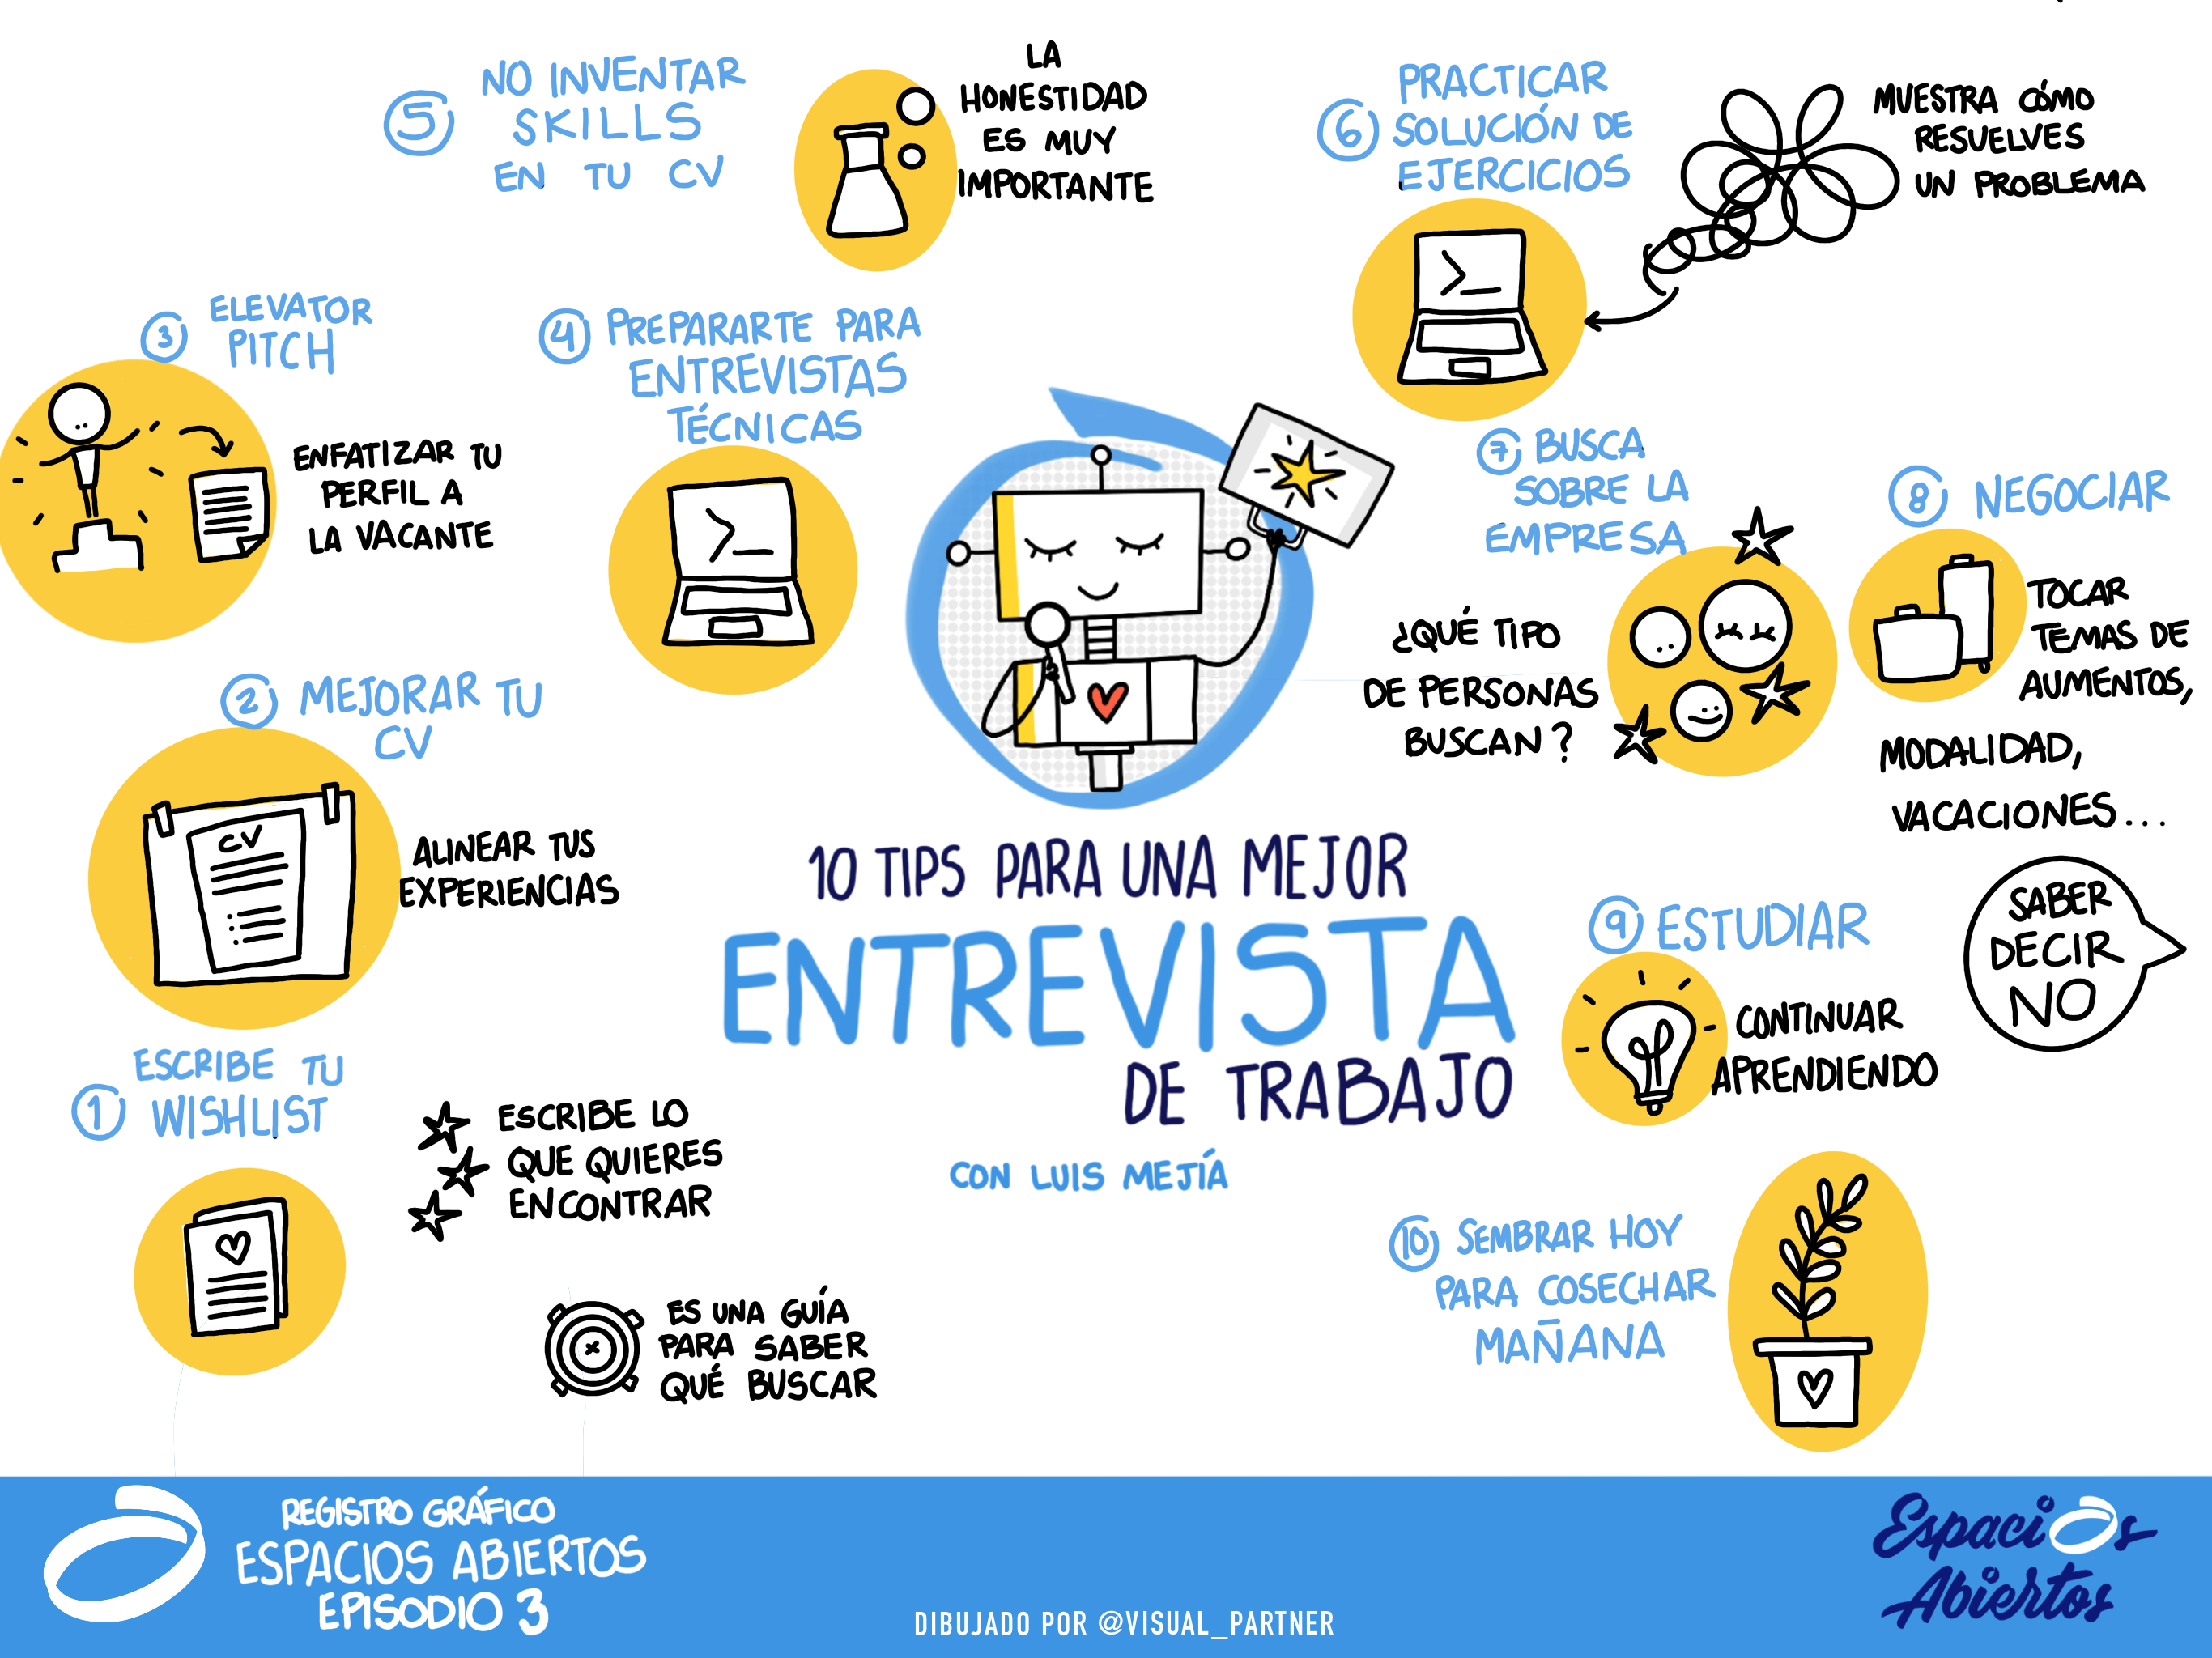 10 TIPS PARA UNA MEJOR
ENTREVISTA
DE TRABAJO
CON LUIS MEJÍA
1
ESCRIBE TU
WISHLIST
ESCRIBE LO
QUE QUIERES
ENCONTRAR
ES UNA GUÍA
PARA SABER
QUÉ BUSCAR
2 MEJORAR TU
CV
CV
ALINEAR TUS
EXPERIENCIAS
3 ELEVATOR
PITCH
ENFATIZAR TU
PERFIL A
LA VACANTE
4 PREPARARTE PARA
ENTREVISTAS
TÉCNICAS
>_
5 NO INVENTAR
SKILLS
EN TU CV
LA
HONESTIDAD
ES MUY
IMPORTANTE
6 PRACTICAR
SOLUCIÓN DE
EJERCICIOS
MUESTRA CÓMO
RESUELVES
UN PROBLEMA
>_
7 BUSCA
SOBRE LA
EMPRESA
¿QUÉ TIPO
DE PERSONAS
BUSCAN?
8 NEGOCIAR
TOCAR
TEMAS DE
AUMENTOS,
MODALIDAD,
VACACIONES...
SABER
DECIR
NO
9 ESTUDIAR
CONTINUAR
APRENDIENDO
10 SEMBRAR HOY
PARA COSECHAR
MAÑANA
REGISTRO GRÁFICO
ESPACIOS ABIERTOS
EPISODIO 3
DIBUJADO POR @VISUAL_PARTNER
Espacios
Abiertos